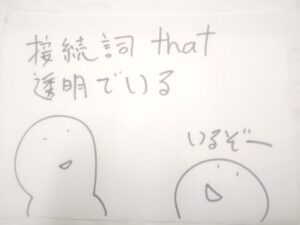 接続詞 that
透明でいる
いるぞー